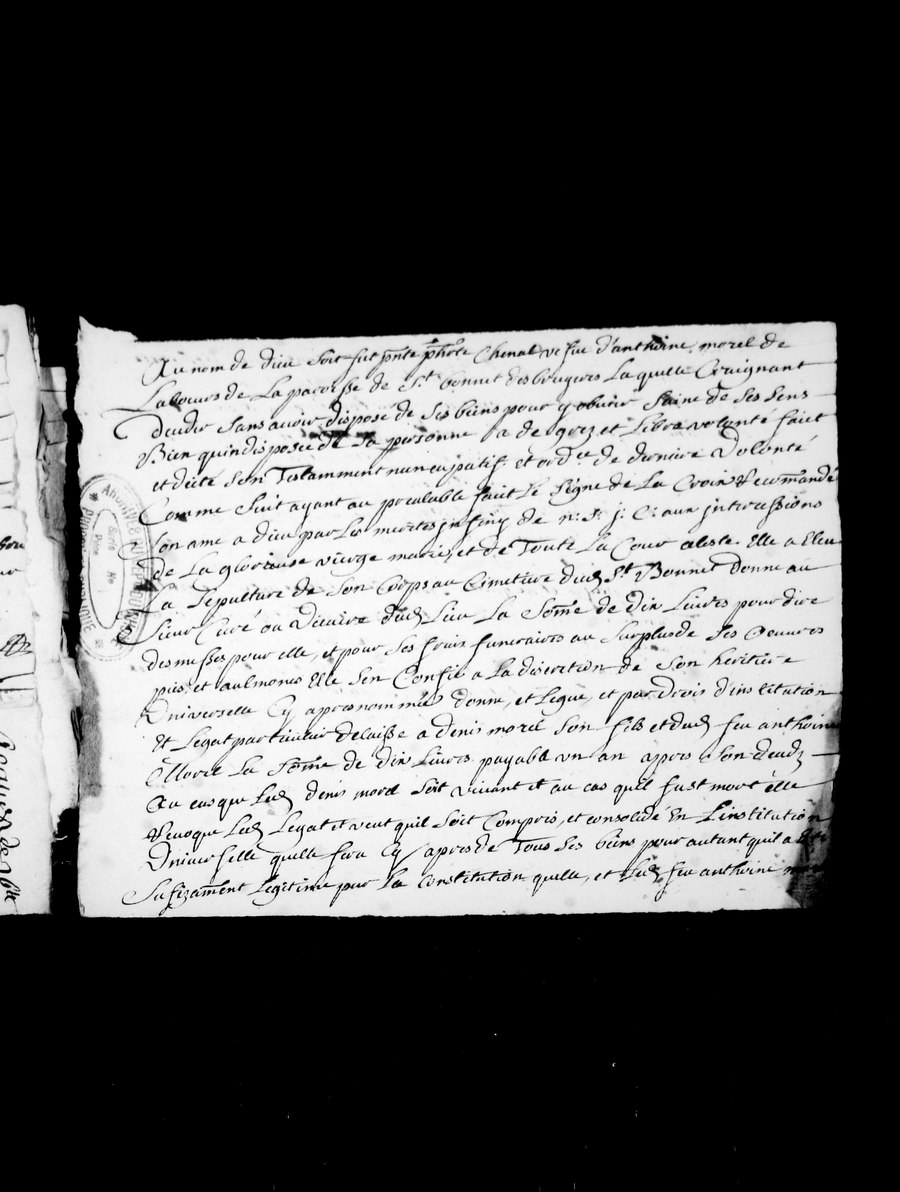 Au nom de dieu soit fut pnte phōte Chenal vefue d'anthoine morel de
Laboeurs de La paroisse de St bonnet desbruyers Laquelle Craignant
deceder sans avoir disposé de ses biens pour y obuier saine de ses sens
Bien quindisposée de sa personne a de grez et Libre volonté faict
et dicté son Testamment nuncupatif et ordre de derniere Volonté
Comme suit ayant au prealable faict Le signe de La Croix Recommandé
son ame a dieu par Les merites infiny de n. s. j. C. aux intercessions
de La glorieuse vierge marie, et de Toute La Cour celeste. Elle a Eleu
La sepulture de son Corps au Cimetiere dud St Bonnet donne au
sieur Curé ou Vicaire dud Lieu La some de dix Liures pour dire
des messes pour elle, et pour ses frais funeraires au surplus de ses Oeuures
pies, et aulmones Elle s'en Confie a La discretion de son heritiere
Vniverselle Cy apres nommée donne, et Legue, et par droit d'institution
Et Legat particulier delaisse a denis morel son fils et dud feu anthoine
Morel La some de dix Liures payable vn an apres son deceds
Au cas que Led denis morel soit vivant et au cas quil fust mort elle
Revoque Led Legat et veut quil soit Compris, et consolidé En L'institution
Vniverselle quelle fera Cy apres de Tous ses biens pour autant quil a
sufizament Legitime par La Constitution quelle, et Led feu anthoine
ARCHIVES
Série
No